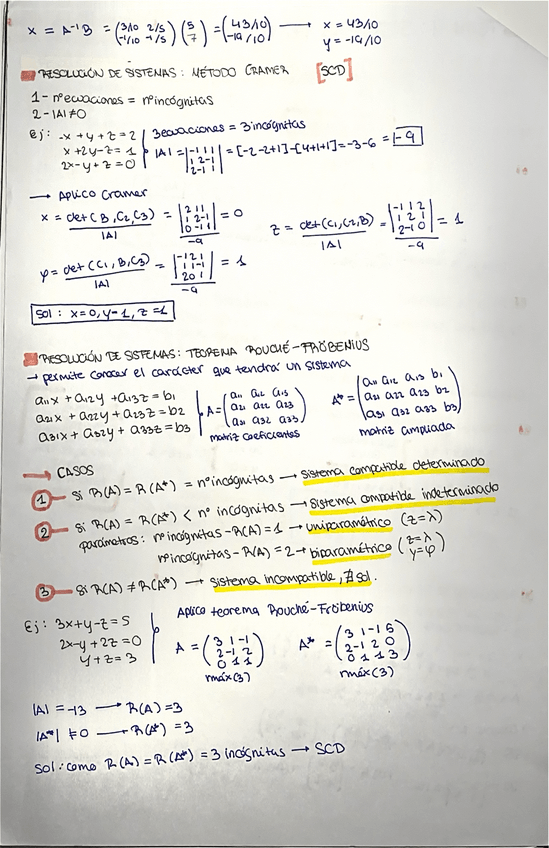 X = A⁻¹B = (3/10 2/5 / -1/10 -1/5) (5 / 7) = (43/10 / -19/10) → x = 43/10
y = -19/10
RESOLUCIÓN DE SISTEMAS: MÉTODO CRAMER [SCD]
1- nº ecuaciones = nº incógnitas
2- |A| ≠ 0
Ej: -x + y + z = 2 | 3 ecuaciones = 3 incógnitas
x + 2y - z = 1 | |A| = |-1 1 1 / 1 2 -1 / 2 -1 1| = [-2-2+1]-[4+1+1] = -3-6 = -9
2x - y + z = 0
→ Aplico Cramer
x = det(B, C2, C3) / |A| = |2 1 1 / 1 2 -1 / 0 -1 1| / -9 = 0
z = det(C1, C2, B) / |A| = |-1 1 2 / 1 2 1 / 2 -1 0| / -9 = 1
y = det(C1, B, C3) / |A| = |-1 2 1 / 1 1 -1 / 2 0 1| / -9 = 1
Sol: x=0, y=1, z=1
RESOLUCIÓN DE SISTEMAS: TEOREMA ROUCHÉ-FRÖBENIUS
→ permite conocer el carácter que tendrá un sistema
a11x + a12y + a13z = b1
a21x + a22y + a23z = b2
a31x + a32y + a33z = b3
A = (a11 a12 a13 / a21 a22 a23 / a31 a32 a33)
matriz coeficientes
A* = (a11 a12 a13 b1 / a21 a22 a23 b2 / a31 a32 a33 b3)
matriz ampliada
→ CASOS
1 - Si R(A) = R(A*) = nº incógnitas → sistema compatible determinado
2 - Si R(A) = R(A*) < nº incógnitas → sistema compatible indeterminado
parámetros: nº incógnitas - R(A) = 1 → uniparamétrico (z=λ)
nº incógnitas - R(A) = 2 → biparamétrico (z=λ / y=φ)
3 - Si R(A) ≠ R(A*) → sistema incompatible, ∄ sol.
Ej: 3x + y - z = 5 | Aplico teorema Rouché-Fröbenius
2x - y + 2z = 0
y + z = 3
A = (3 1 -1 / 2 -1 2 / 0 1 1)
rmáx(3)
A* = (3 1 -1 5 / 2 -1 2 0 / 0 1 1 3)
rmáx(3)
|A| = -13 → R(A) = 3
|A*| ≠ 0 → R(A*) = 3
Sol: como R(A) = R(A*) = 3 incógnitas → SCD